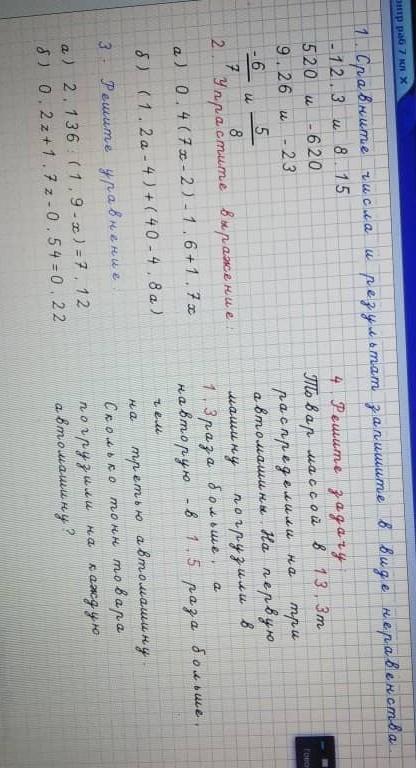 нтр раб 7 кл X
1. Сравните числа и результат запишите в виде неравенства
-12,3 и 8.15
520 и -620
9,26 и -23
-6/7 и 5/8
2. Упрастите выражение:
а) 0.4(7x-2)-1.6+1.7x
б) (1.2а-4)+(40-4.8а)
3. Решите уравнение:
а) 2.136:(1,9-x)=7.12
б) 0.2z+1.7z-0.54=0.22
4 Решите задачу
Товар массой в 13,3т
распределили на три
автомашины. На первую
машину погрузили в
1,3раза больше, а
навторую - в 1.5 раза больше,
чем
на третью автомашину.
Сколько тонн товара
погрузили на каждую
автомашину?